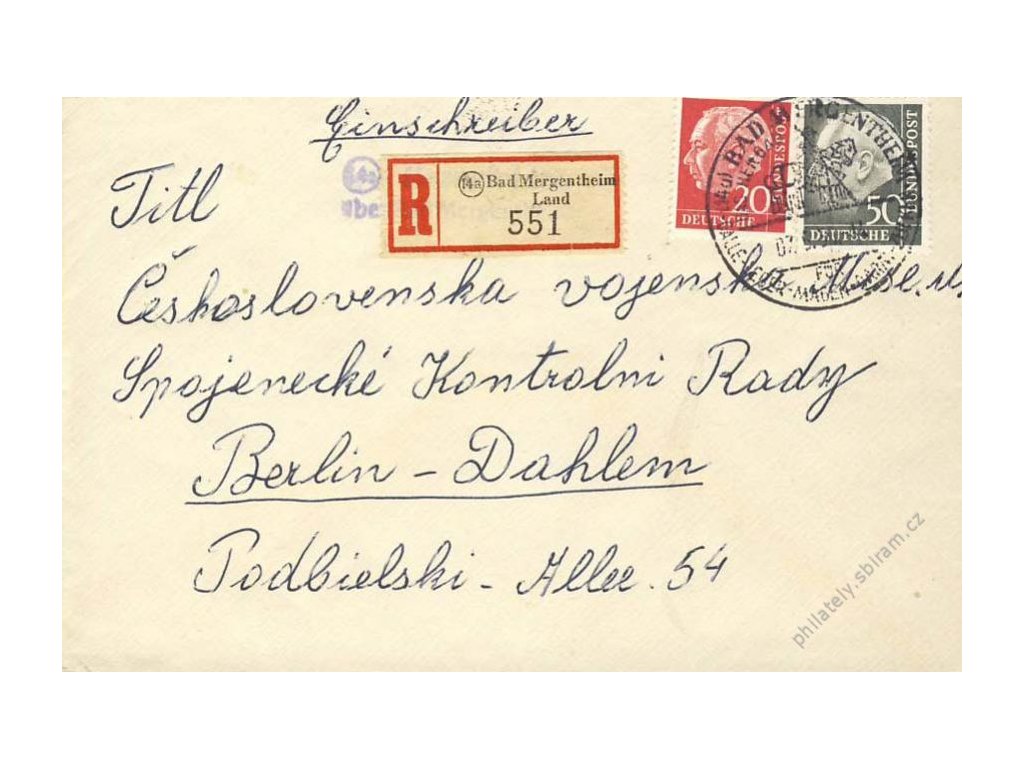 Einschreiber
Titl
R
14a Bad Mergentheim
Land
551
20
DEUTSCHE
BUNDESPOST
50
DEUTSCHE
BUNDESPOST
(14a) BAD MERGENTHEIM
Československa vojenska
Spojenecké Kontrolni Rady
Berlin - Dahlem
Podbielski - Allee. 54
philately.sbiram.cz